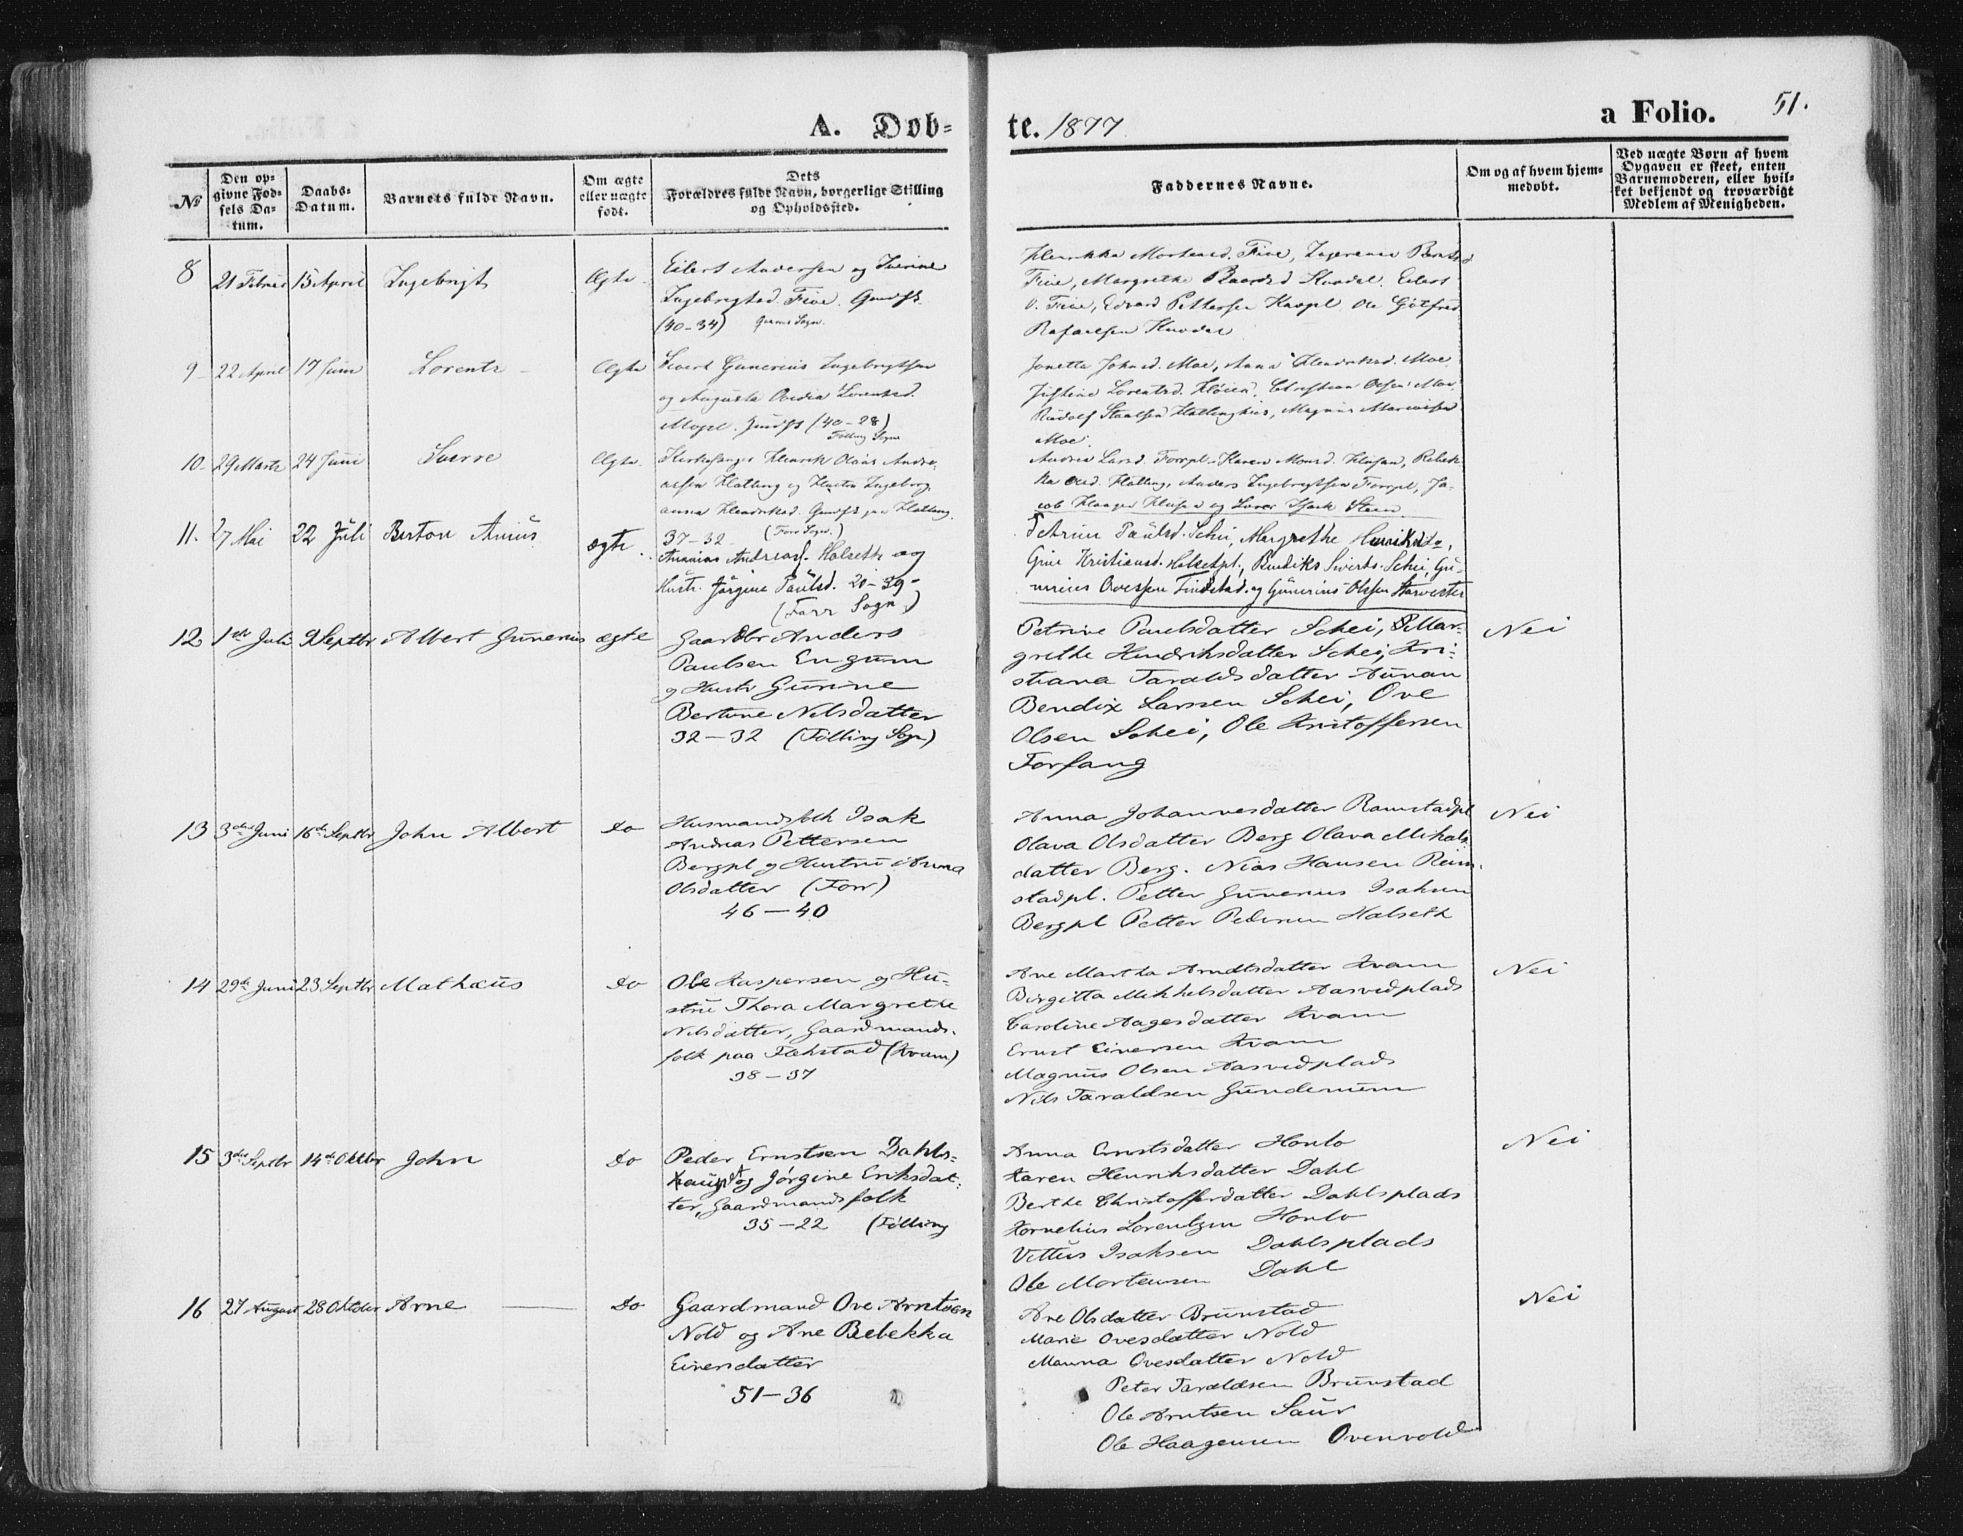 A. Døb-
te. 1877
a Folio. 51.
№
Den op-
givne Fød-
sels Da-
tum.
Daabs-
Datum.
Barnets fulde Navn.
Om ægte
eller uægte
født.
Dets
Forældres fulde Navn, borgerlige Stilling
og Opholdssted.
Faddernes Navne.
Om og af hvem hjem-
medøbt.
Ved uægte Børn af hvem
Opgaven er skeet, enten
Barnemoderen, eller hvil-
ket bekjendt og troværdigt
Medlem af Menigheden.
8
21 Februar
15 April
Ingebrigt
Ægte
Eilert Andersen og
Ingebrigtsd. Five.
(40-34)
Five, Margrethe
Five, Edvard Pettersen Ole Gotfred
Rafaelsen
9
22 April
17 Juni
Lorents
Ægte
Sivert Gunerius Ingebrigtsen
og Augusta Lorentsd.
(40-28)
Følling Sogn
Jonetta Johnsd. Moe, Anna Hendriksd. Moe
Lorentsd. Christian Olsen Moe
Rudolf
Moe.
10
29 Marts
24 Juni
Sverre
Ægte
Kirkesanger Henrik Olaus Andre-
assen Hatling og Hustru Ingeborg
anna Hendriksd.
Andrea Larsd.
Anders Ingebrigtsen Ja-
cob
11.
27 Mai
22 Juli
Berton Anius
ægte
37-32 (Fors Sogn.)
Andreass. Halseth og
Hustr. Jørgine Paulsd. 20-39
(Forr Sogn)
Petrine Paulsd. Schei, Margrethe Henriksd. do,
Gine Kristiansd. Halsetpl., Bendiks Siverts. Schei, Gu-
nerius Ovessen Findstad og Gunerius Olssen
12
1ste Juli
9 Septbr
Albert Gunerius
ægte
Gaardbr Anders
Paulsen Engum
og Hustr Gurine
Bertine Nilsdatter
32-32 (Følling Sogn)
Petrine Paulsdatter Schei, Mar-
grethe Hendriksdatter Schei, Kri-
stiana Taraldsdatter Aunan
Bendix Larssen Schei, Ove
Olsen Schei, Ole Kristoffersen
Forfang
Nei
13
3die Juni
16de Septbr
John Albert
do
Husmandsfolk Isak
Andreas Pettersen
Bergpl og Hustru Anna
Olsdatter (Forr)
46-40
Anna Johannesdatter Ramstadpl
Olava Olsdatter Berg Olava Mikals-
datter Berg. Nias Hansen Ram-
stadpl. Petter Gunerius Isaksen
Bergpl Petter Pedersen Halseth
Nei
14
29de Juni
23 Septbr
Mathæus
do
Ole Kaspersen og Hu-
stru Thora Margrethe
Nilsdatter, Gaardmands-
folk paa Fækstad (Kvam)
38-37
Ane Martha Arndtsdatter Kvam
Birgitta Mikkelsdatter Aasvedplads
Caroline Aagesdatter Kvam
Ernst Einersen Kvam
Magnus Olsen Aasvedplads
Nils Taraldsen Gundemum
Nei
15
3die Septbr
14de Oktbr
John
do
Peder Ernstsen Dahls-
haug og Jørgine Eriksdat-
ter, Gaardmandsfolk
35-22 (Følling
Anna Ernstsdatter Honlo
Karen Henriksdatter Dahl
Berthe Christoffersdatter Dahlsplads
Kornelius Lorentzen Honlo
Vittus Isaksen Dahlsplads
Ole Mortensen Dahl
Nei
16
27 August
28 Oktober
Arne
do
Gaardmand Ove Arntsen
Nold og Ane Bebekka
Einersdatter
51-36
Ane Olsdatter Brunstad
Marie Ovesdatter Nold
Manna Ovesdatter Nold
Peter Taraldsen Brunstad
Ole Arntsen Saur
Ole Haagensen Ovenvold
Nei